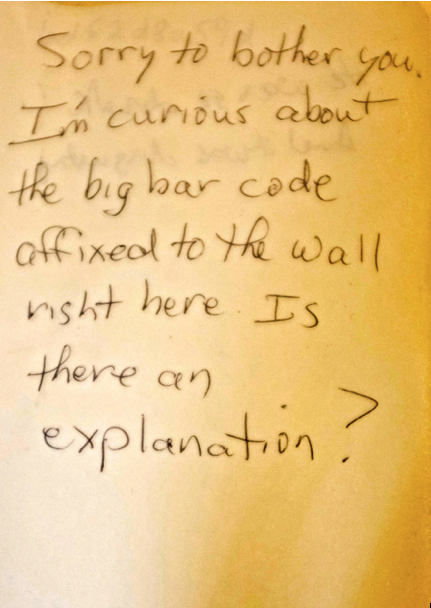 Sorry to bother you.
I'm curious about
the big bar code
affixed to the wall
right here. Is
there an
explanation?